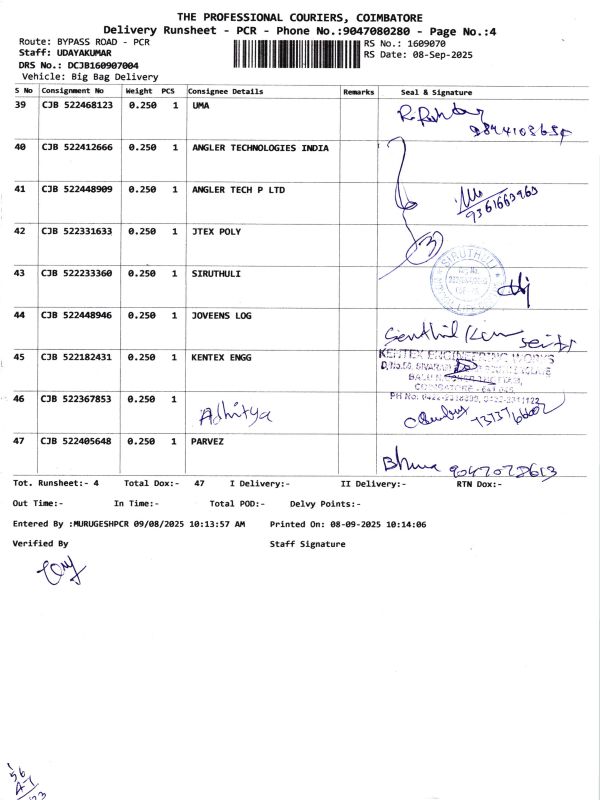 THE PROFESSIONAL COURIERS, COIMBATORE
Delivery Runsheet - PCR - Phone No.:9047080280 - Page No.:4
Route: BYPASS ROAD - PCR
RS No.: 1609070
Staff: UDAYAKUMAR
RS Date: 08-Sep-2025
DRS No.: DCJB160907004
Vehicle: Big Bag Delivery
S No Consignment No Weight PCS Consignee Details Remarks Seal & Signature
39 CJB 522468123 0.250 1 UMA
40 CJB 522412666 0.250 1 ANGLER TECHNOLOGIES INDIA
41 CJB 522448909 0.250 1 ANGLER TECH P LTD
42 CJB 522331633 0.250 1 JTEX POLY
43 CJB 522233360 0.250 1 SIRUTHULI
SIRUTHULI
44 CJB 522448946 0.250 1 JOVEENS LOG
Senthil
45 CJB 522182431 0.250 1 KENTEX ENGG
KENTEX ENGINEERING WORKS
46 CJB 522367853 0.250 1 Adhitya
47 CJB 522405648 0.250 1 PARVEZ
Tot. Runsheet:- 4 Total Dox:- 47 I Delivery:- II Delivery:- RTN Dox:-
Out Time:- In Time:- Total POD:- Delvy Points:-
Entered By :MURUGESHPCR 09/08/2025 10:13:57 AM Printed On: 08-09-2025 10:14:06
Verified By Staff Signature